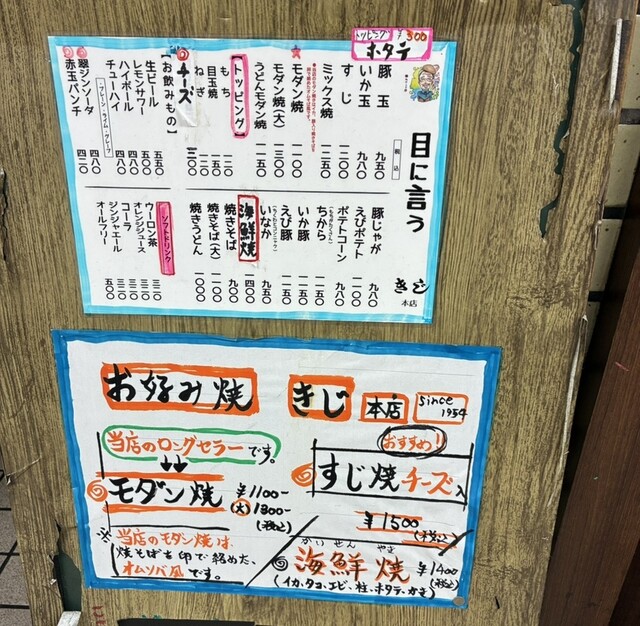 トッピング ¥300
ホタテ
目に言う
税込
豚玉 九五〇
いか玉 九八〇
すじ
ミックス焼 一二五〇
モダン焼 一一〇〇
モダン焼(大)
うどんモダン焼 一一五〇
【トッピング】
もち
目玉焼
ねぎ
チーズ
【お飲みもの】
生ビール 五五〇
レモンサワー 五〇〇
ハイボール 四八〇
チューハイ 四八〇
(プレーン・ライム・グレープ)
翠ジンソーダ 四八〇
赤玉パンチ 四二〇
豚じゃが 九八〇
えびポテト 一一〇〇
ポテトコーン 九八〇
ちから
いか豚 一一五〇
えび豚 一一五〇
いなか 九五〇
海鮮焼 一四〇〇
焼きそば 九〇〇
焼きそば(大)
焼きうどん 一〇〇〇
ソフトドリンク
ウーロン茶 三一〇
オレンジジュース 三一〇
コーラ 三一〇
ジンジャエール 三一〇
オールフリー 五〇〇
きじ
本店
お好み焼 きじ 本店 since 1954
当店のロングセラーです。
モダン焼 ¥1100-
(大) 1300-
(税込)
※当店のモダン焼は、
焼そばを卵で絡めた、
オムソバ風です。
おすすめ!!
すじ焼チーズ入
¥1500
(税込)
かいせん やき
海鮮焼 ¥1400
(税込)
(イカ、タコ、エビ、柱、ホタテ、かき)